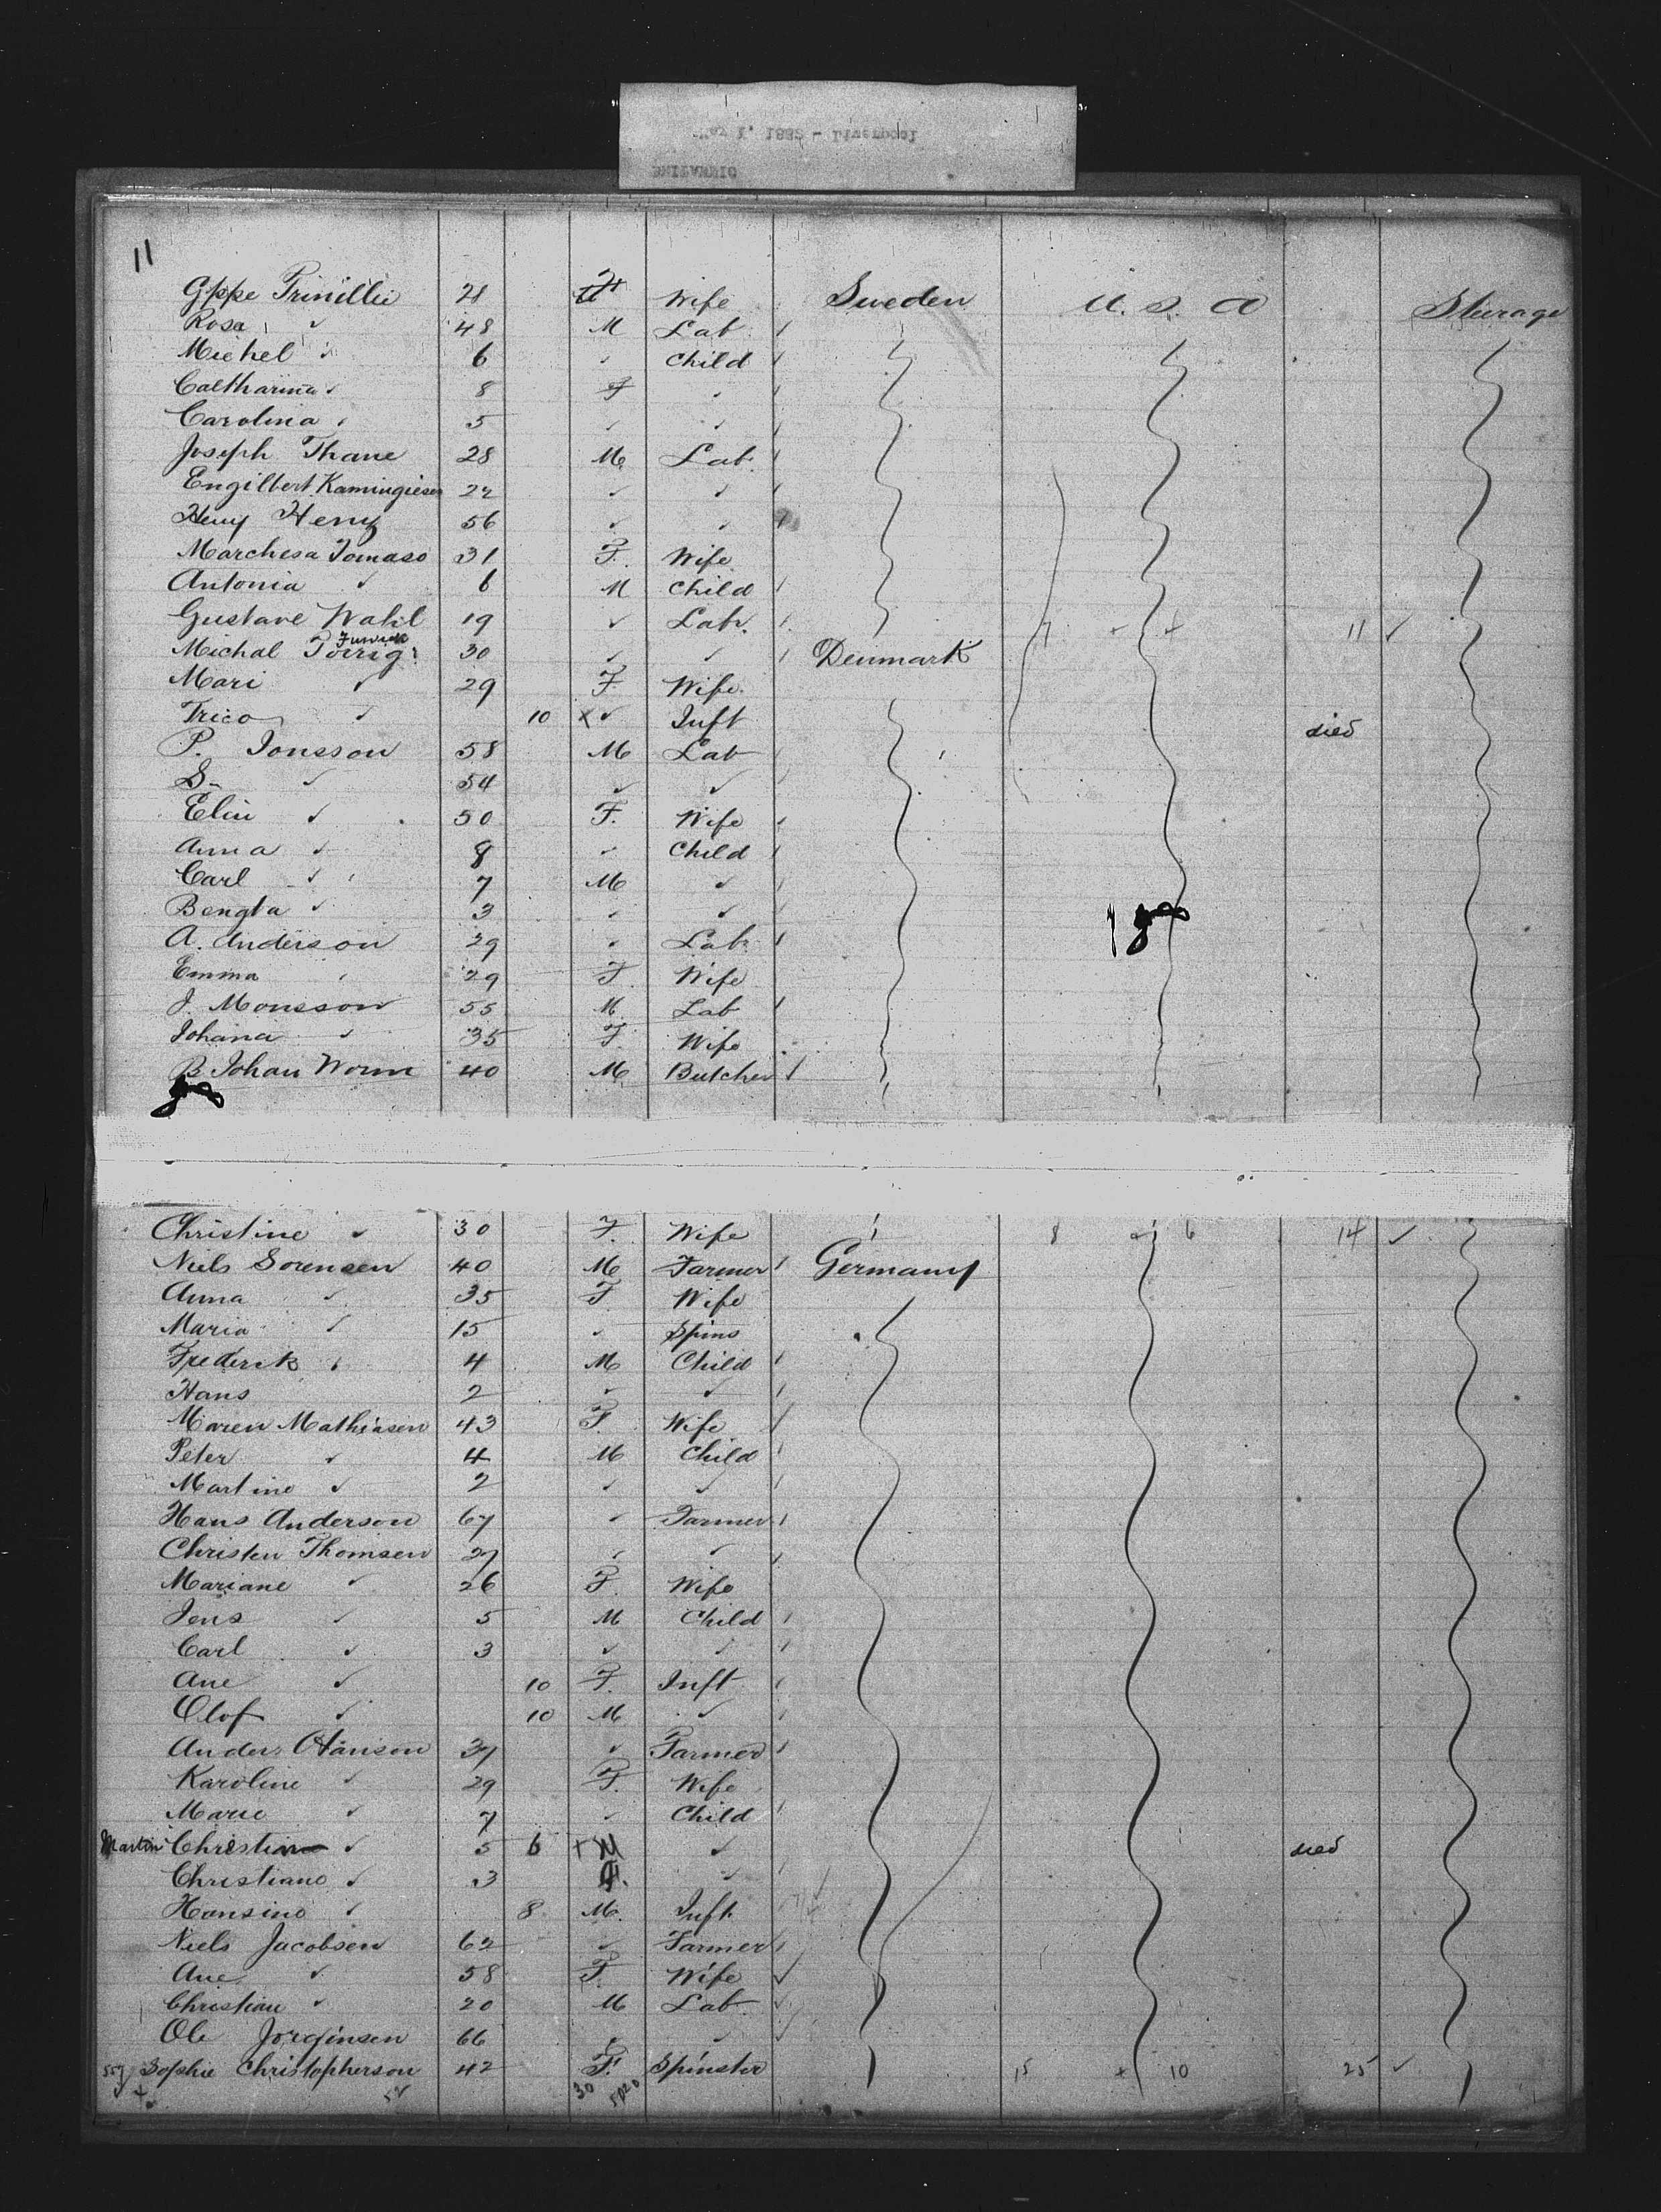 May 1, 1882 - Liverpool
BRITANNIC
11
Gppe Prinillie 21 F Wife Sweden U.S.A Sturage
Rosa ✓ 48 M Lab
Michel ✓ 6 ✓ Child
Caltharina ✓ 8 F ✓
Carolina ✓ 5 ✓ ✓
Joseph Thane 28 M Lab
Engilbert Kamingieser 22 ✓ ✓
Heny Heny 56 ✓ ✓
Marchesa Tomaso 31 F. Wife
Antonia ✓ 6 M Child
Gustave Wahl 19 ✓ Labr. 7 + 4 11 ✓
Michal 30 ✓ ✓ Denmark
Mari ✓ 29 F. Wife
Trico ✓ 10 x ✓ Inft died
P. Jonsson 58 M Lab
S- ✓ 54 ✓ ✓
Elin ✓ 50 F. Wife
Anna ✓ 8 ✓ Child
Carl ✓ 7 M ✓
Bengta ✓ 3 ✓ ✓
A. Anderson 29 ✓ Labr
Emma ✓ 29 F Wife
J. Monsson 55 M Lab
Johana ✓ 35 F. Wife
B Johan Worm 40 M Butcher
Christine ✓ 30 F. Wife 8 + 6 14 ✓
Niels Sorensen 40 M Farmer Germany
Anna ✓ 35 F Wife
Maria ✓ 15 ✓ Spins
Frederik ✓ 4 M Child
Hans 2 ✓ ✓
Maren Mathiasen 43 F. Wife
Peter ✓ 4 M Child
Martine ✓ 2 ✓ ✓
Hans Anderson 67 ✓ Farmer
Christen Thomsen 27 ✓ ✓
Mariane ✓ 26 F. Wife
Jens ✓ 5 M Child
Carl ✓ 3 ✓ ✓
Ane ✓ 10 F. Inft
Olof ✓ 10 M ✓
Anders Hanson 37 ✓ Farmer
Karoline ✓ 29 F. Wife
Marie ✓ 7 ✓ Child
Martin Christian ✓ 5 6 + M ✓ died
Christiano ✓ 3 F. ✓
Hansine ✓ 8 M. Inft
Niels Jacobsen 62 ✓ Farmer
Ane ✓ 58 F. Wife
Christian ✓ 20 M Lab
Ole Jorginsen 66 ✓ ✓
557 Sophie Christopherson 42 F. Spinster 15 + 10 25 ✓